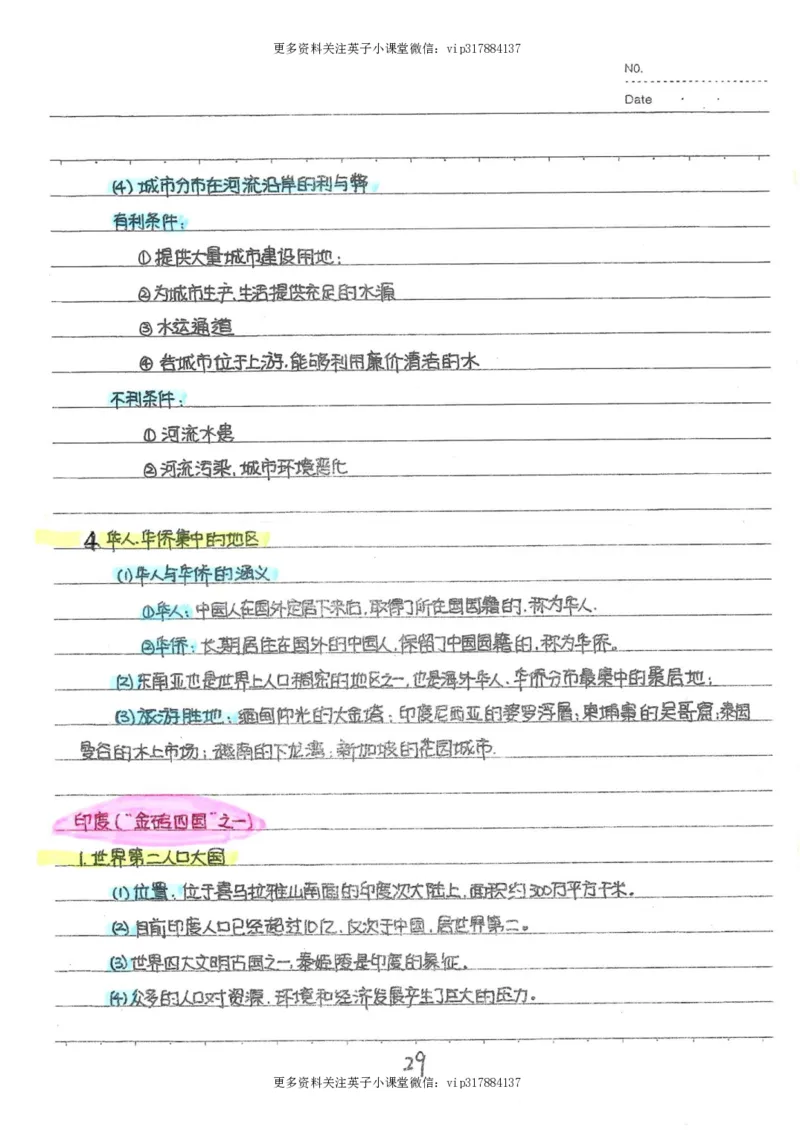 更多资料关注英子小课堂微信：vip317884137
NO.
Date
(4)城市分布在河流沿岸的利与弊
有利条件：
①提供大量城市建设用地；
②为城市生产、生活提供充足的水源
③水运通道
④各城市位于上游，能够利用廉价清洁的水
不利条件：
①河流水患
②河流污染，城市环境恶化
4.华人、华侨集中的地区
(1)华人与华侨的涵义
①华人：中国人在国外定居下来后，取得了所在国国籍的，称为华人.
②华侨：长期居住在国外的中国人，保留了中国国籍的，称为华侨。
(2)东南亚也是世界上人口稠密的地区之一，也是海外华人、华侨分布最集中的聚居地；
(3)旅游胜地：缅甸仰光的大金塔；印度尼西亚的婆罗浮屠；柬埔寨的吴哥窟；泰国
曼谷的水上市场；越南的下龙湾；新加坡的花园城市.
印度("金砖四国"之一)
1.世界第二人口大国
(1)位置，位于喜马拉雅山南面的印度次大陆上，面积约300万平方千米。
(2)目前印度人口已经超过10亿，仅次于中国，居世界第二。
(3)世界四大文明古国之一，泰姬陵是印度的象征.
(4)众多的人口对资源、环境和经济发展产生了巨大的压力。
29
更多资料关注英子小课堂微信：vip317884137